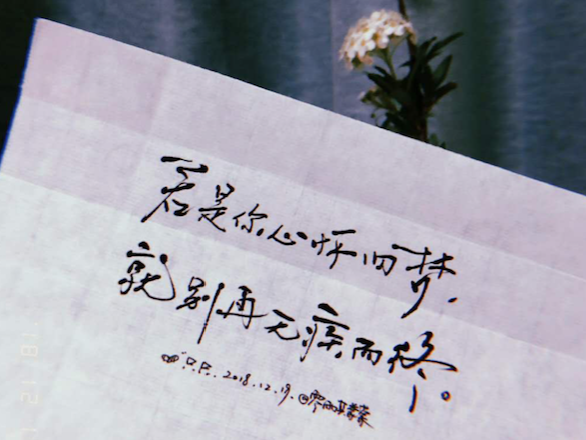 若是你心怀旧梦,
就别再无疾而终。
只只.2018.12.19.